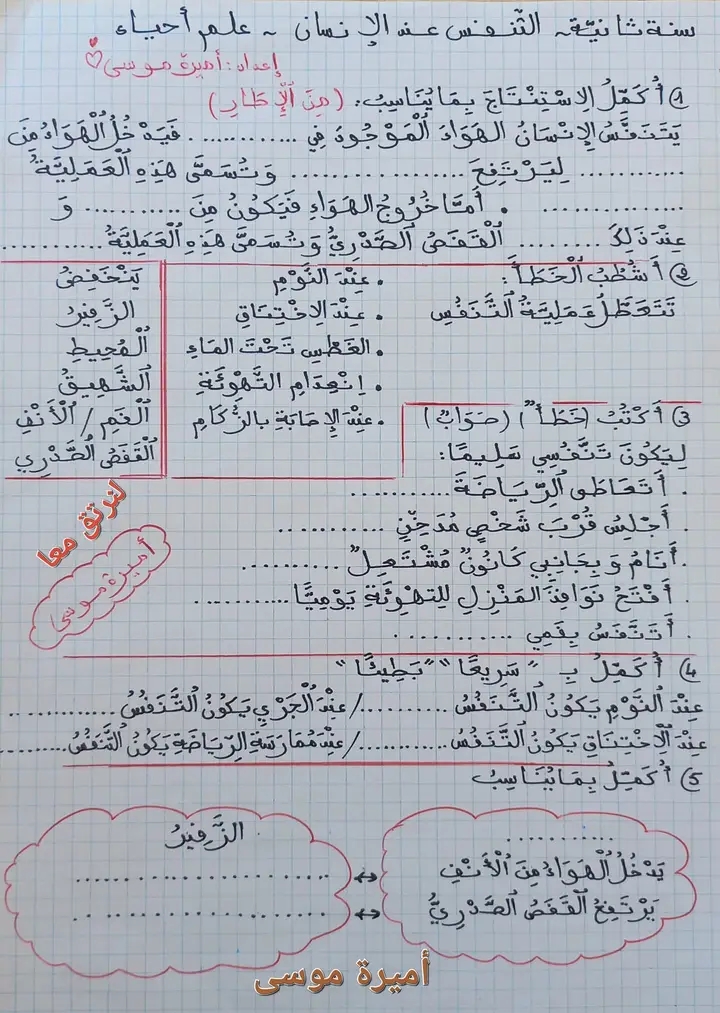 سنة ثانية ـ التنفس عند الإنسان ـ علم أحياء
إعداد: أميرة موسى
① أُكَمِّلُ الِاسْتِنْتَاجَ بِمَا يُنَاسِبُ: (مِنَ الْإِطَارِ)
يَتَنَفَّسُ الإِنْسَانُ الهَوَاءَ الْمَوْجُودَ فِي ............ فَيَدْخُلُ الْهَوَاءُ مِنَ
............ لِيَرْتَفِعَ ................ وَتُسَمَّى هَذِهِ الْعَمَلِيَّةُ
............ . أَمَّا خُرُوجُ الهَوَاءِ فَيَكُونُ مِنَ ........... وَ
عِنْدَ ذَلِكَ .......... الْقَفَصُ الصَّدْرِيُّ وَتُسَمَّى هَذِهِ الْعَمَلِيَّةُ ............
② أَشْطُبُ الْخَطَأَ:
تَتَعَطَّلُ عَمَلِيَّةُ التَّنَفُّسِ
. عِنْدَ النَّوْمِ
. عِنْدَ الِاخْتِنَاقِ
. الغَطْسِ تَحْتَ المَاءِ
. اِنْعِدَامِ التَّهْوِئَةِ
. عِنْدَ الإِصَابَةِ بِالزُّكَامِ
يَنْخَفِضُ
الزَّفِيرُ
الْمُحِيطِ
الشَّهِيقُ
الْفَمِ / الْأَنْفِ
الْقَفَصُ الصَّدْرِي
③ أَكْتُبُ (خَطَأٌ) (صَوَابٌ)
لِيَكُونَ تَنَفُّسِي سَلِيمًا:
. أَتَعَاطَى الرِّيَاضَةَ ............
. أَجْلِسُ قُرْبَ شَخْصٍ مُدَخِّنٍ ............
. أَنَامُ وَبِجَانِبِي كَانُونٌ مُشْتَعِلٌ ............
. أَفْتَحُ نَوَافِذَ المَنْزِلِ لِلتَّهْوِئَةِ يَوْمِيًّا ............
. أَتَنَفَّسُ بِفَمِي ............
لنرتق معا
أميرة موسى
④ أُكَمِّلُ بِـ "سَرِيعًا" "بَطِيئًا"
عِنْدَ النَّوْمِ يَكُونُ التَّنَفُّسُ ........../ عِنْدَ الْجَرْيِ يَكُونُ التَّنَفُّسُ ............
عِنْدَ الِاخْتِنَاقِ يَكُونُ التَّنَفُّسُ ........../ عِنْدَ مُمَارَسَةِ الرِّيَاضَةِ يَكُونُ التَّنَفُّسُ ............
⑤ أُكَمِّلُ بِمَا يُنَاسِبُ
............
يَدْخُلُ الْهَوَاءُ مِنَ الْأَنْفِ
يَرْتَفِعُ القَفَصُ الصَّدْرِيُّ
الزَّفِيرُ
........................
........................
أميرة موسى